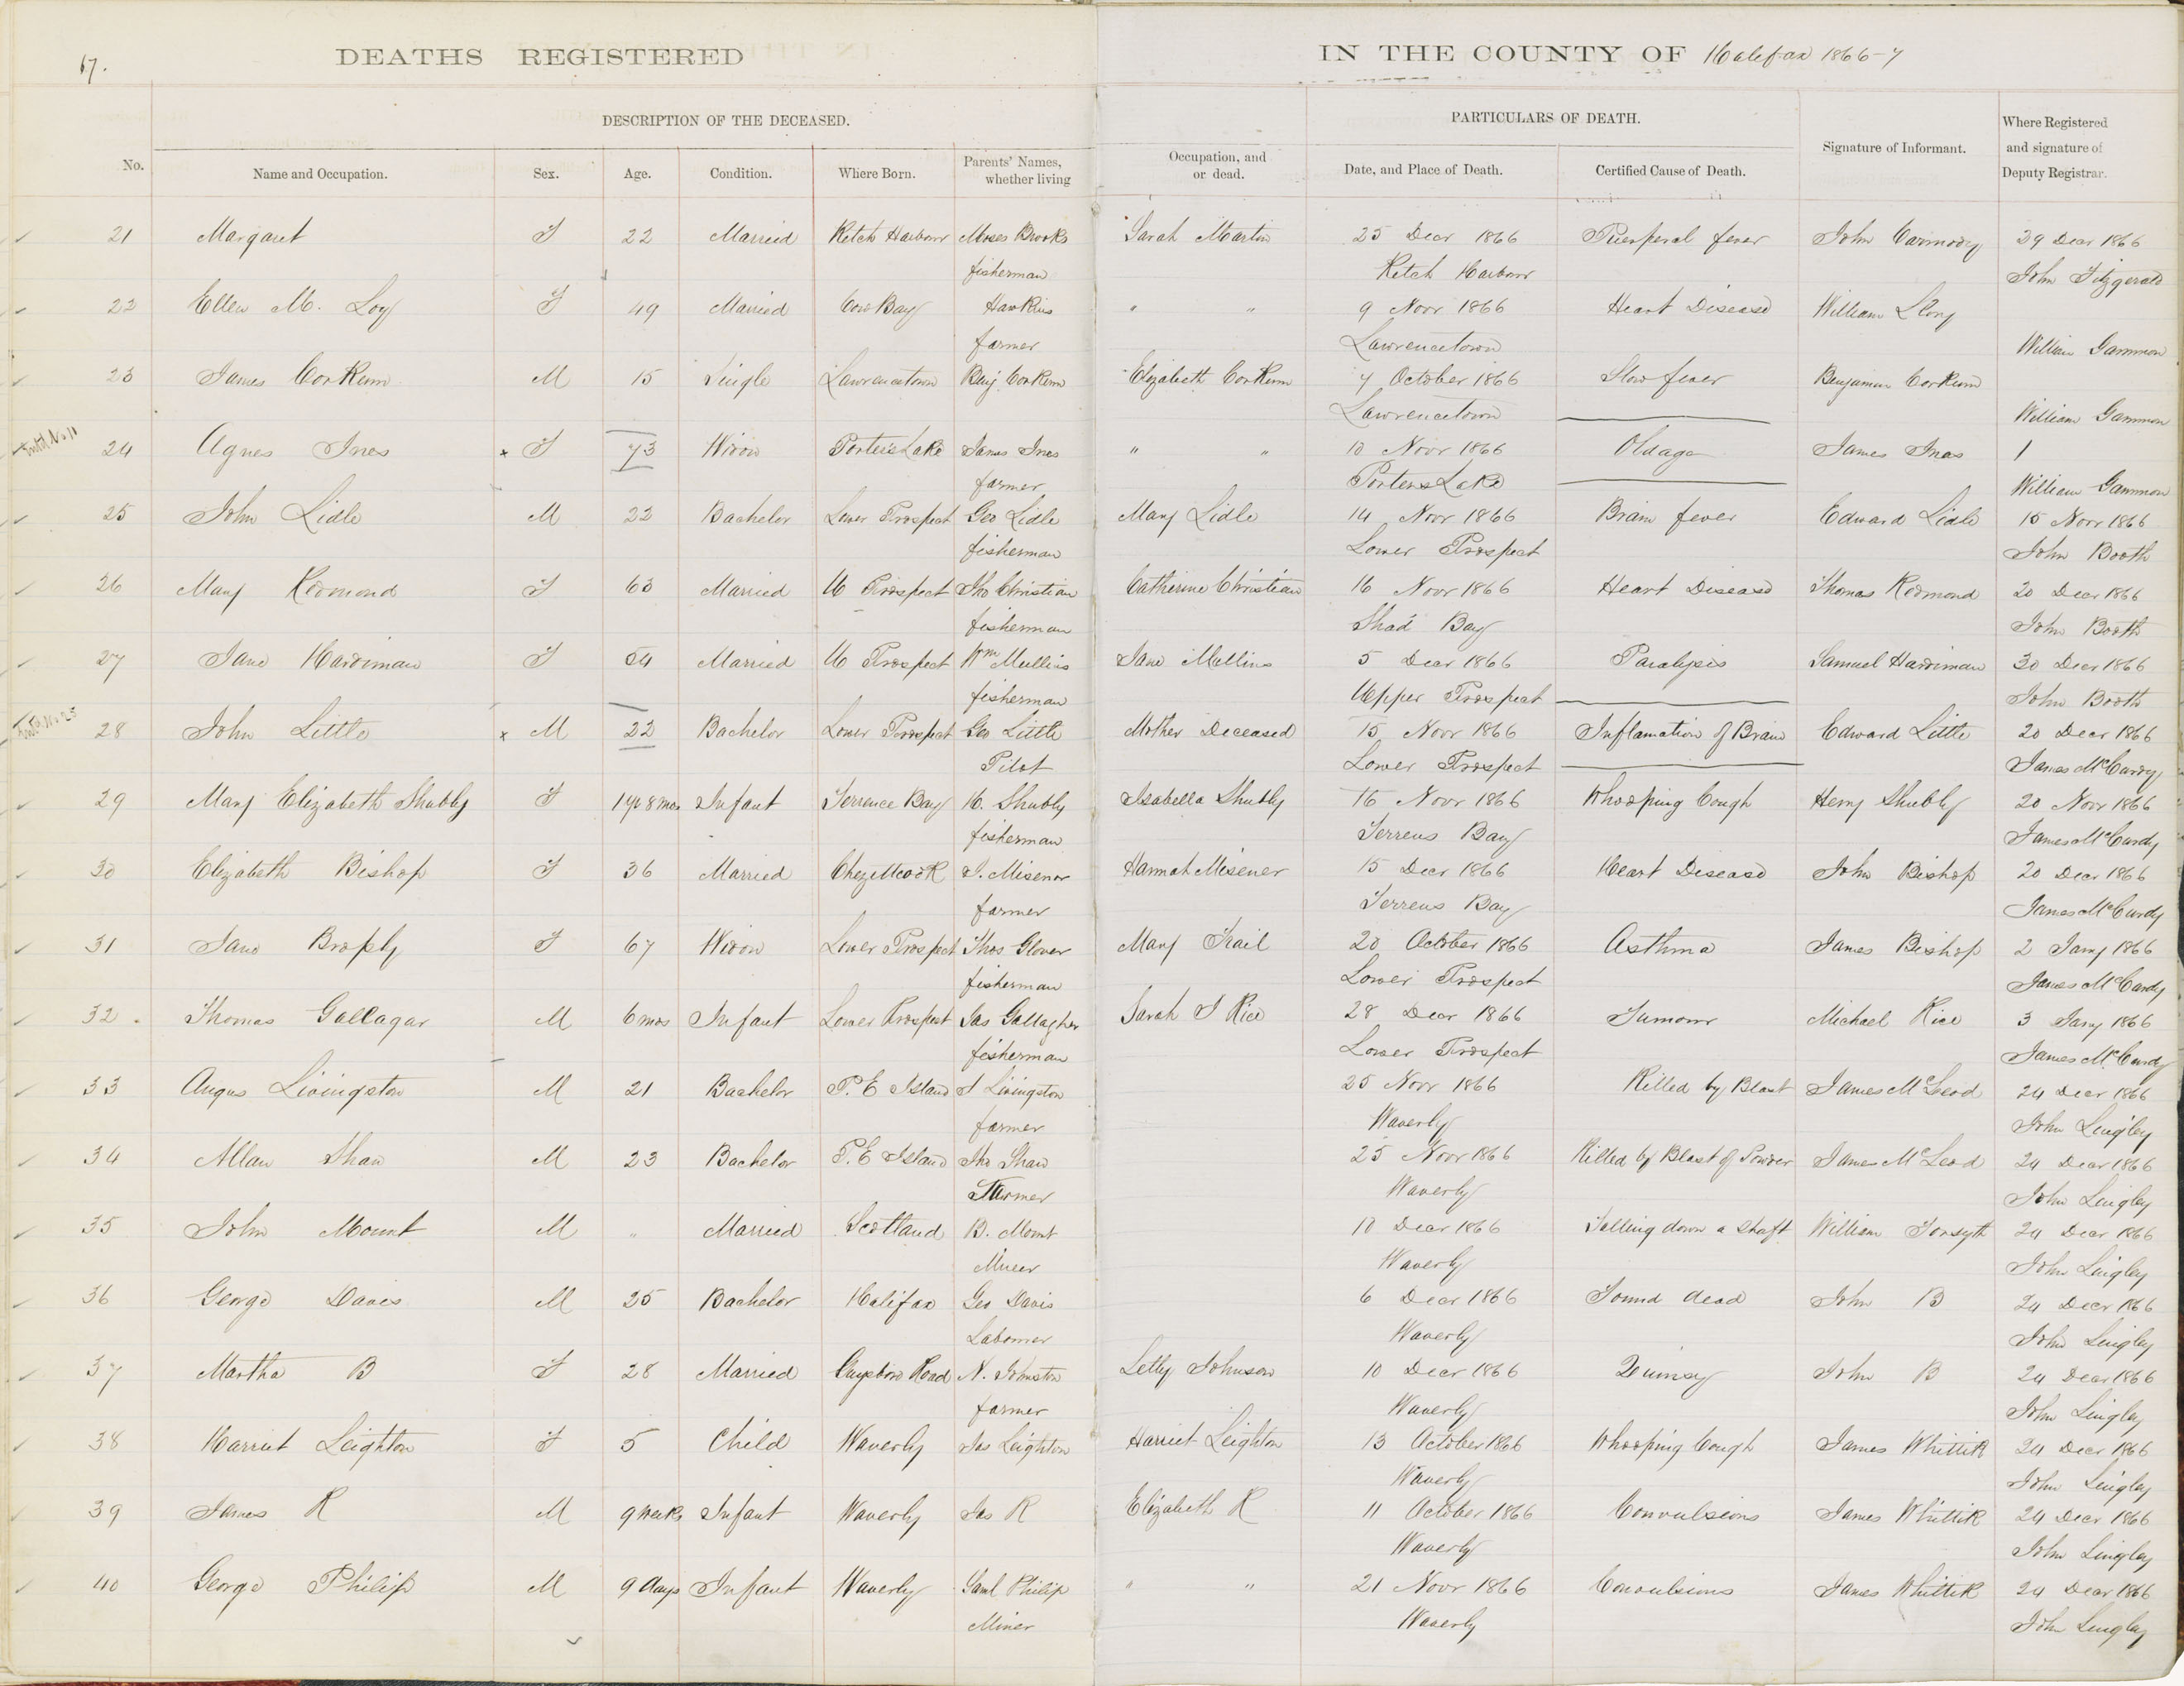 67.
DEATHS REGISTERED IN THE COUNTY OF Halifax 1866-7
DESCRIPTION OF THE DECEASED. PARTICULARS OF DEATH.
No. Name and Occupation. Sex. Age. Condition. Where Born. Parents' Names, whether living Occupation, and or dead. Date, and Place of Death. Certified Cause of Death. Signature of Informant. Where Registered and signature of Deputy Registrar.
21 Margaret F 22 Married Ketch Harbour Moses Brooks Sarah Martin 25 Decr 1866 Puerperal fever John Carmody 29 Decr 1866
fisherman Ketch Harbour John Fitzgerald
22 Ellen M. Loy F 49 Married Cow Bay Hawkins " " 9 Novr 1866 Heart Disease William
farmer Lawrencetown William Gammon
23 James Corkum M 15 Single Lawrencetown Benj Corkum Elizabeth Corkum 7 October 1866 Slow fever Benjamin Corkum
Lawrencetown William Gammon
24 Agnes Ines x F 73 Widow Porters Lake James Ines " " 10 Novr 1866 Oldage James Ines
farmer Porters Lake William Gammon
25 John Lidle M 22 Bachelor Lower Prospect Geo Lidle Mary Lidle 14 Novr 1866 Brain fever Edward Lidle 15 Novr 1866
fisherman Lower Prospect John Booth
26 Mary Redmond F 63 Married U Prospect Tho Christian Catherine Christian 16 Novr 1866 Heart Disease Thomas Redmond 20 Decr 1866
fisherman Shad Bay John Booth
27 Jane Hardiman F 54 Married U Prospect Wm Mullins Jane Mullins 5 Decr 1866 Paralysis Samuel Hardiman 30 Decr 1866
fisherman Upper Prospect John Booth
28 John Little x M 22 Bachelor Lower Prospect Geo Little Mother Deceased 15 Novr 1866 Inflamation of Brain Edward Little 20 Decr 1866
Pilot Lower Prospect James McCurdy
29 Mary Elizabeth Shubly F 1yr 8mos Infant Terrence Bay H. Shubly Isabella Shubly 16 Novr 1866 Whooping Cough Henry Shubly 20 Novr 1866
fisherman Terrens Bay James McCurdy
30 Elizabeth Bishop F 36 Married Chezetcook J. Misener Hannah Misener 15 Decr 1866 Heart Disease John Bishop 20 Decr 1866
farmer Terrens Bay James McCurdy
31 Jane Brophy F 67 Widow Lower Prospect Thos Glover Mary Trail 20 October 1866 Asthma James Bishop 2 Jany 1866
fisherman Lower Prospect James McCurdy
32 Thomas Gallagar M 6 mos Infant Lower Prospect Jas Gallagher Sarah J Rice 28 Decr 1866 Tumour Michael Rice 3 Jany 1866
fisherman Lower Prospect James McCurdy
33 Angus Livingston M 21 Bachelor P. E Island J Livingston 25 Novr 1866 Killed by Blast James McLeod 24 Decr 1866
farmer Waverly John Lingley
34 Allan Shaw M 23 Bachelor P. E Island Jno Shaw 25 Novr 1866 Killed by Blast of Powder James McLeod 24 Decr 1866
Farmer Waverly John Lingley
35 John Mount M " Married Scotland B. Mount 10 Decr 1866 Falling down a Shaft William Forsyth 24 Decr 1866
Miner Waverly John Lingley
36 George Davis M 25 Bachelor Halifax Geo Davis 6 Decr 1866 Found dead John B 24 Decr 1866
Labourer Waverly John Lingley
37 Martha B F 28 Married Guysboro Road N. Johnston Letty Johnson 10 Decr 1866 Quinsy John B 24 Decr 1866
farmer Waverly John Lingley
38 Harriet Leighton F 5 Child Waverly Jas Leighton Harriet Leighton 13 October 1866 Whooping Cough James Whittik 24 Decr 1866
Waverly John Lingley
39 James R M 9 weeks Infant Waverly Jas R Elizabeth R 11 October 1866 Convulsions James Whittik 24 Decr 1866
Waverly John Lingley
40 George Philip M 9 days Infant Waverly Saml Philip " " 21 Novr 1866 Convulsions James Whittik 24 Decr 1866
Miner Waverly John Lingley